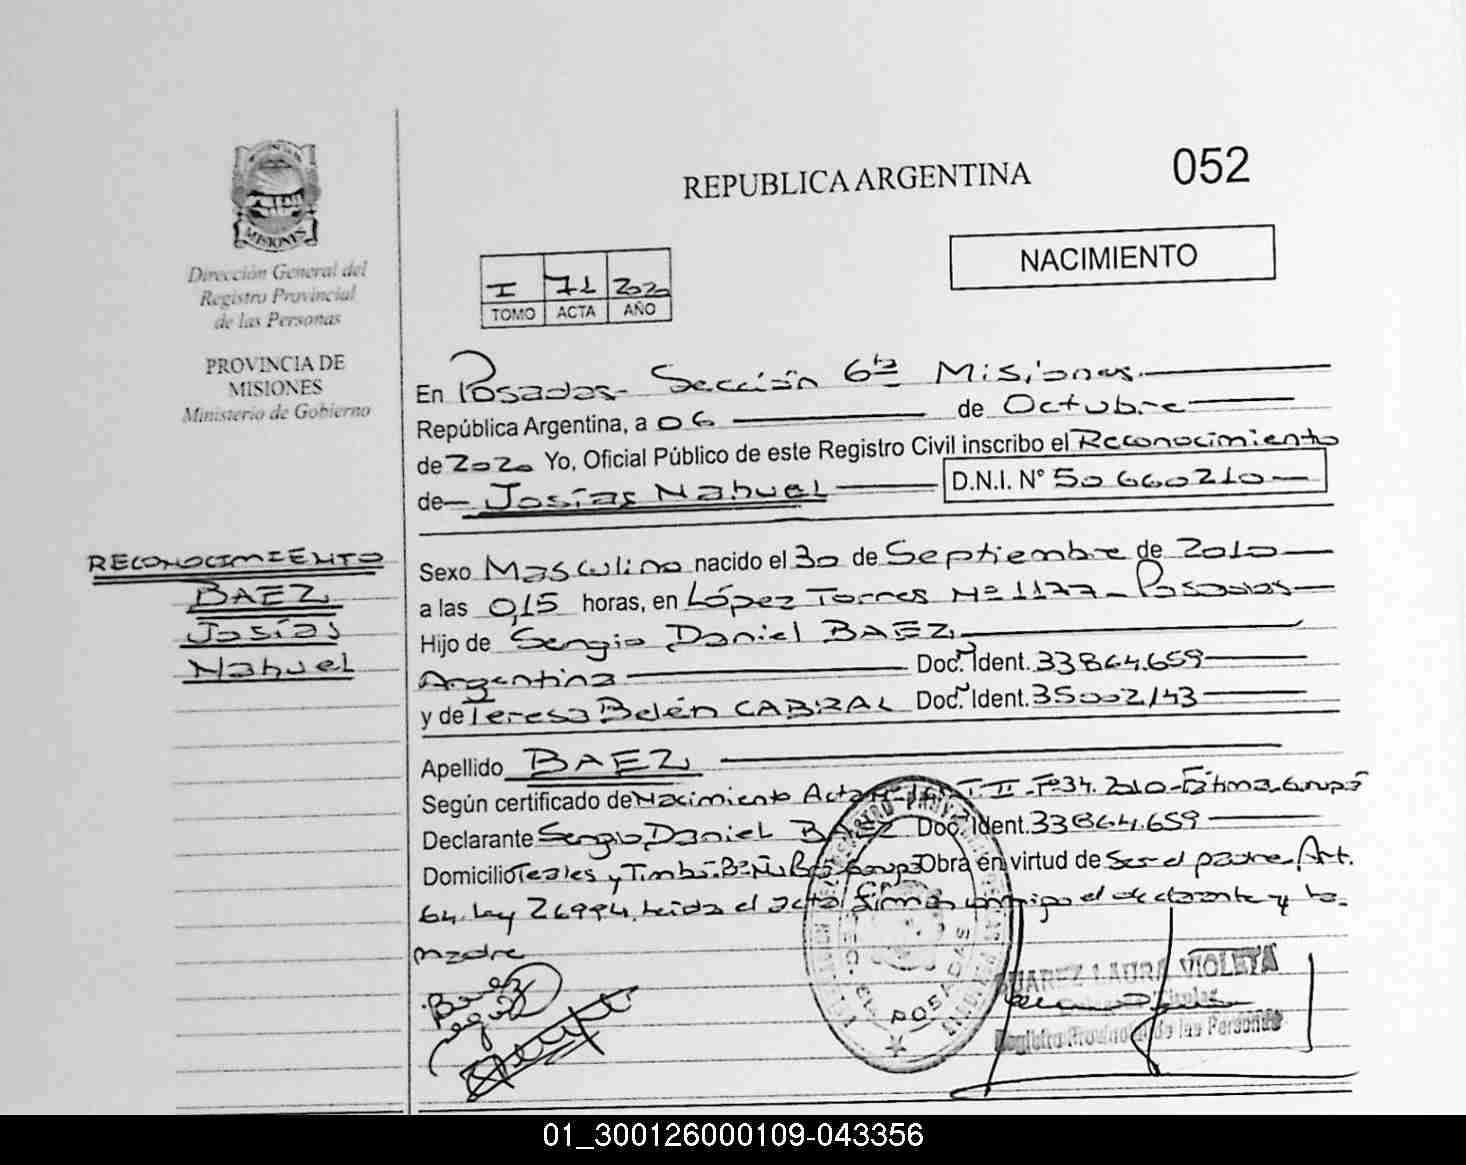 REPUBLICA ARGENTINA
052
NACIMIENTO
MISIONES
Dirección General del
Registro Provincial
de las Personas
PROVINCIA DE
MISIONES
Ministerio de Gobierno
I 71 2020
TOMO ACTA AÑO
En Posadas- Sección 6ta Misiones.
República Argentina, a 06 de Octubre
de 2020 Yo, Oficial Público de este Registro Civil inscribo el Reconocimiento
de Josías Nahuel D.N.I. N° 50.660210
RECONOCIMIENTO
BAEZ
Josías
Nahuel
Sexo Masculino nacido el 30 de Septiembre de 2010
a las 0,15 horas, en López Torres Nº 1177- Posadas
Hijo de Sergio Daniel BAEZ
Argentina Doc. Ident. 33864.659
y de Teresa Belén CABRAL Doc. Ident. 35002143
Apellido BAEZ
Según certificado de Nacimiento Acta T. II - Fº 34. 2010 - Fátima. Garupá
Declarante Sergio Daniel BAEZ Doc. Ident. 33864.659
Domicilio Teales y Timbó. Bº Garupá Obra en virtud de Ser el padre, Art.
64. ley 26994, leida el acta firman conmigo el declarante y la
madre
Baez
POSADAS
SUAREZ LAURA VIOLETA
Titular
Registro Provincial de las Personas
01_300126000109-043356